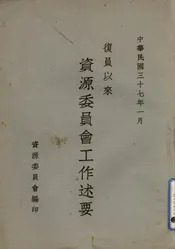 中華民國三十七年一月
復員以來
資源委員會工作述要
資源委員會編印